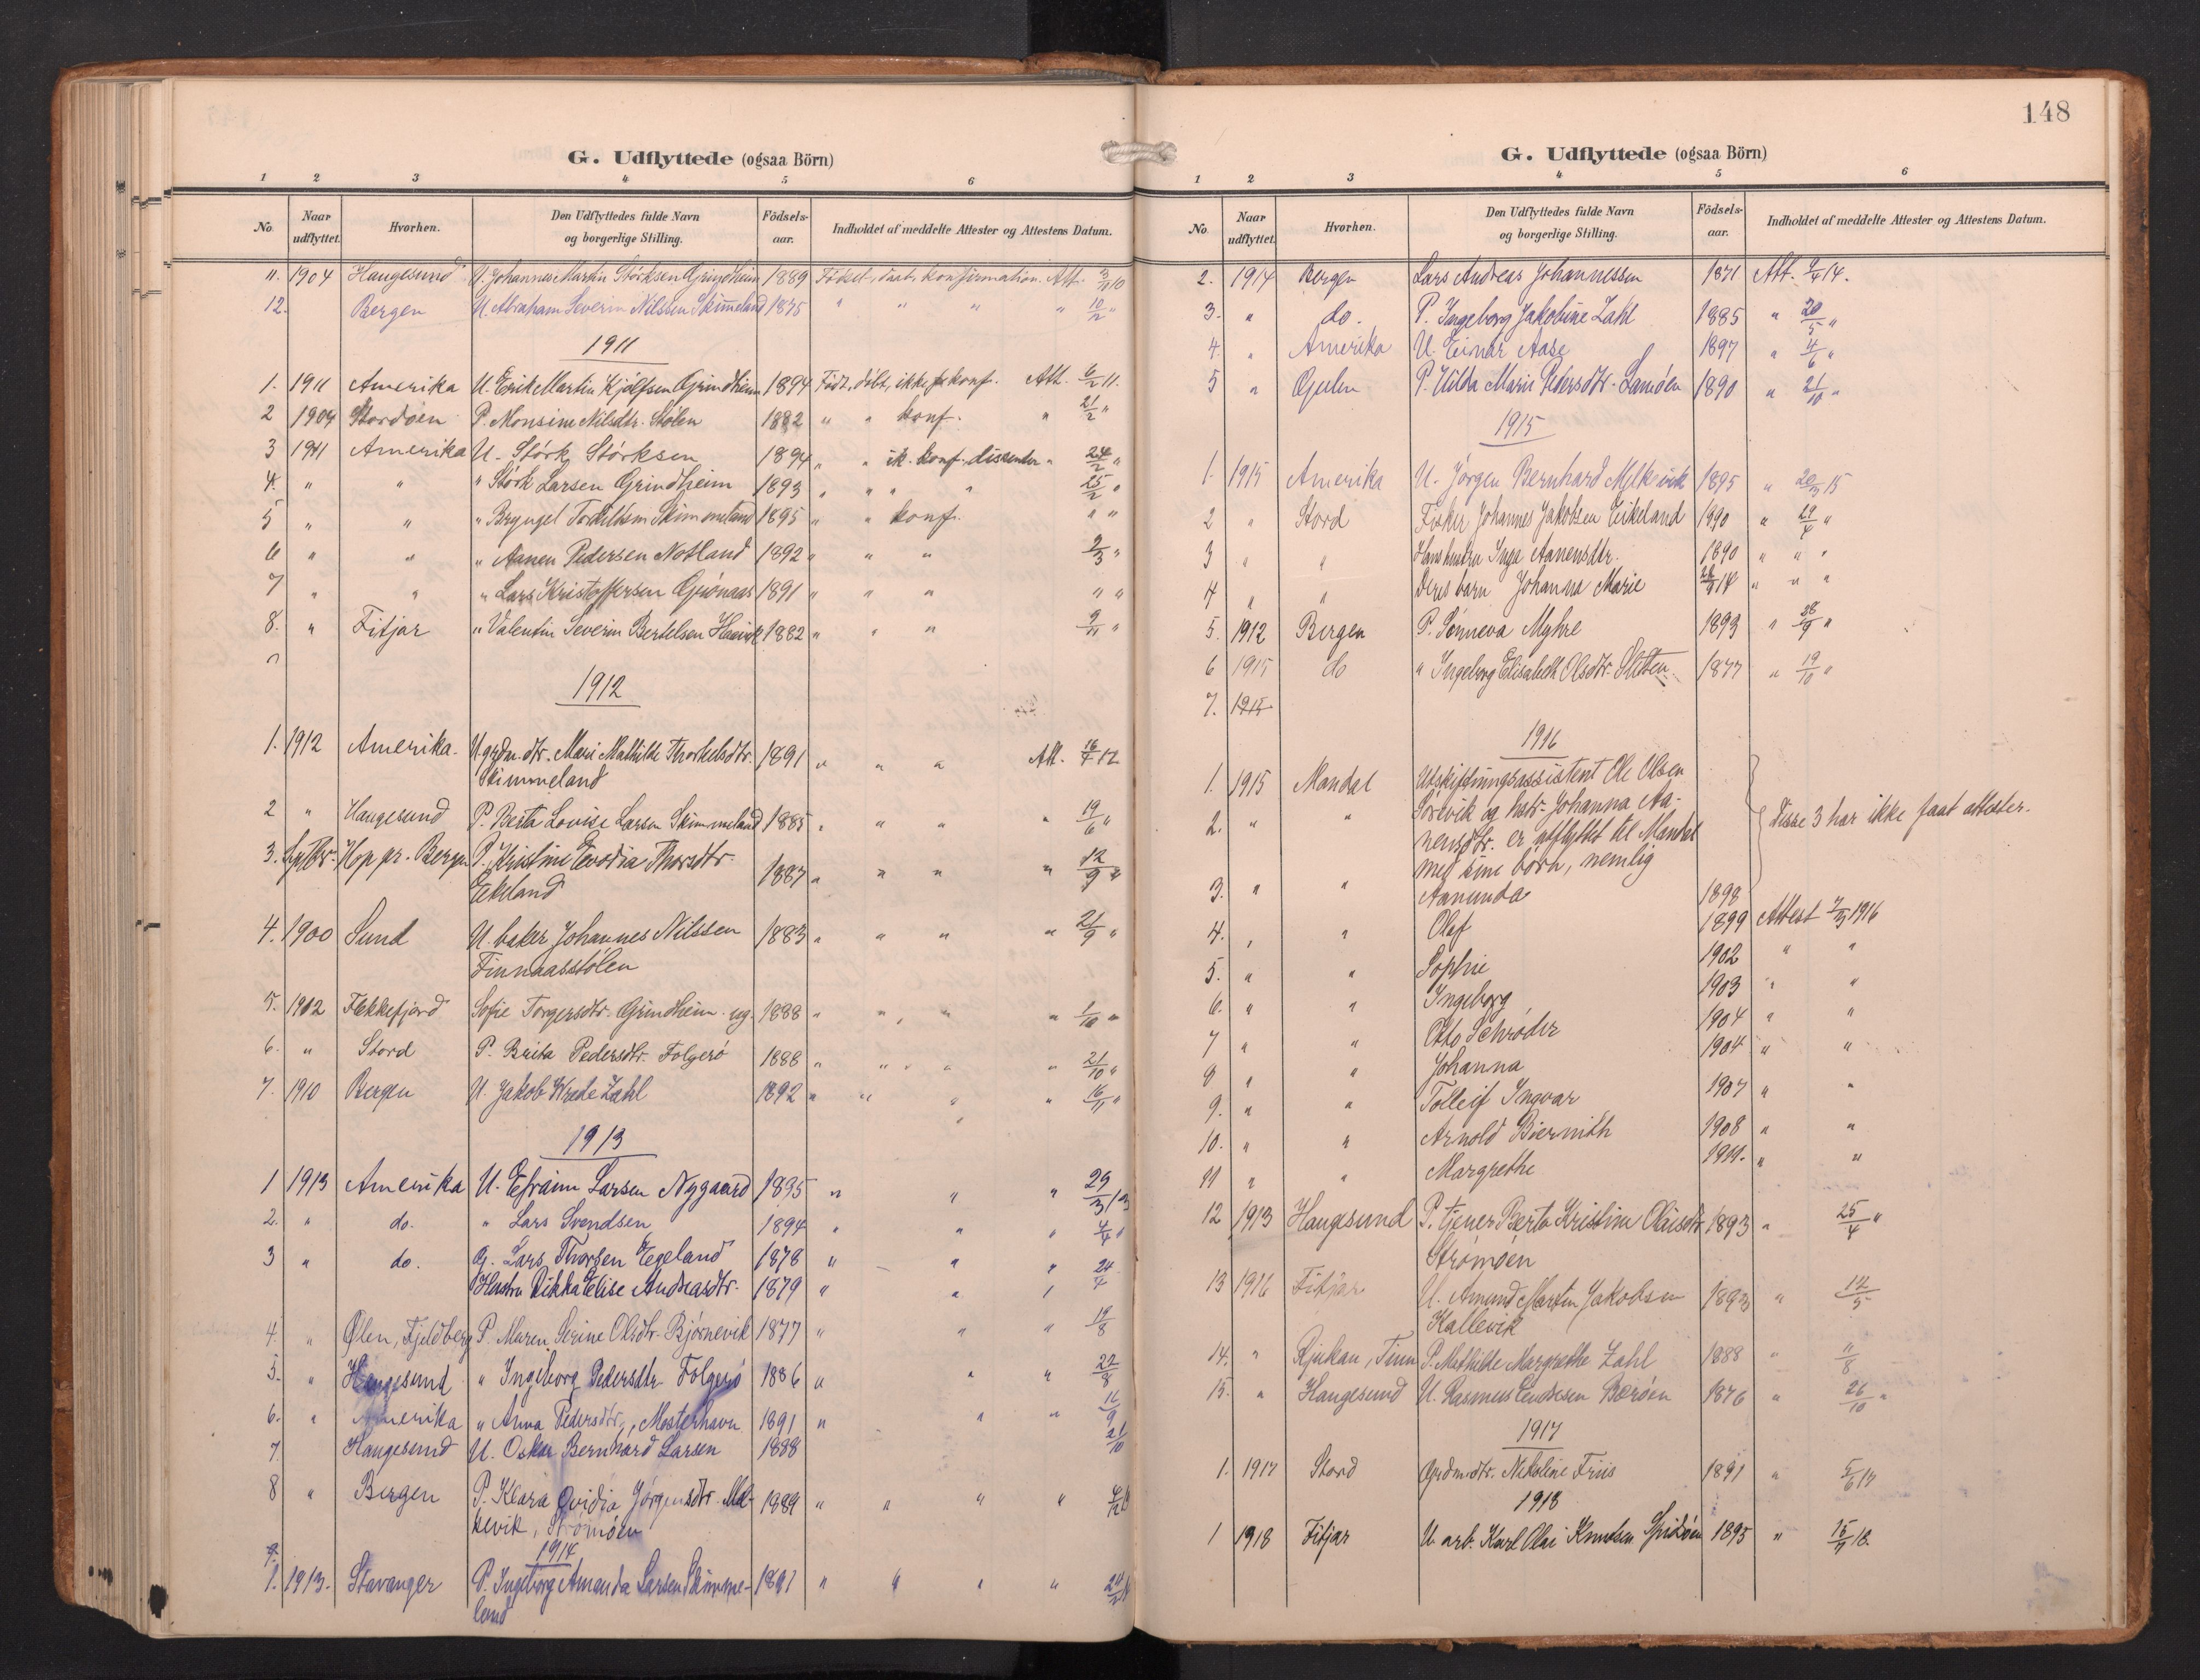 G. Udflyttede (ogsaa Börn)
1 2 3 4 5 6
No. Naar udflyttet. Hvorhen. Den Udflyttedes fulde Navn og borgerlige Stilling. Födsels-aar. Indholdet af meddelte Attester og Attestens Datum.
11. 1904 Haugesund U. Johannes Martin Störksen Grindheim 1889 Födsel, daab, konfirmation. Att. 3/9 10
12. Bergen U. Abraham Severin Nilssen Skimmeland 1875 " " " " 10/2 "
1911
1. 1911 Amerika U. Erik Martin Kjölfsen Grindheim 1894 Födt, döbt, ikke konf. Att. 6/2 11.
2 1904 Stordöen P. Monsine Nilsdtr. Stölen 1882 " " konf. " 21/2 "
3 1911 Amerika U. Störk Störksen 1894 " " ik. konf. dissenter " 24/2 "
4. " " " Störk Larsen Grindheim 1893 " " " " 25/2 "
5 " " " Bryngel Torkildsen Skimmeland 1895 " " konf. " "
6 " " " Aanen Pedersen Notland 1892 " " " 2/3 "
7 " " " Lars Kristoffersen Gjönaas 1891 " " " " "
8. " Fitjar " Valentin Severin Bertelsen 1882 " " " 9/11 "
1912
1. 1912 Amerika. U. grdm. dtr. Mari Mathilde Thorkelsdtr. 1891 " " " Att. 16/4 12
Skimmeland
2 " Haugesund P. Berta Lovise Larsen Skimmeland 1885 " " " " 19/6 "
3. Septbr. Hop pr. Bergen P. Kristine Evodia Thorsdtr. 1887 " " " " 12/9 "
Eekeland
4. 1900 Sund U. baker Johannes Nilssen 1883 " " " " 21/9 "
Finnaasstölen
5. 1902 Flekkefjord Sofie Torgersdtr. Grindheim. ug. 1888 " " " " 1/10 "
6. " Stord P. Brita Pedersdtr. Folgerö 1888 " " " " 21/10 "
7. 1910 Bergen U. Jakob Wrede Zahl 1892 " " " " 16/11 "
1913
1 1913 Amerika U. Efraim Larsen Nygaard 1895 " " " 29/3 13
2. " do. " Lars Svendsen 1894 " " " 4/4 "
3 " do. G. Lars Thorsen Egeland 1878 " " " 24/4
Hustru Rikka Elise Andreasdtr. 1879 "
4. " Ölen, Fjeldberg P. Maren Serine Olsdtr. Björnevik 1877 " " " 19/8
5. " Haugesund " Ingeborg Pedersdtr. Folgerö 1886 " " " 22/8
6. " Amerika " Anna Pedersdtr., Mosterhavn 1891 " " " 16/9
7. Haugesund U. Oskar Bernhard Larsen 1888 21/10
8 " Bergen P. Klara Ovidia Jörgensdtr. Mel- 1889 " " " "
kevik, Strömöen
1914
1. 1913. Stavanger P. Ingeborg Amanda Larsen Skimme- 1891 " " " "
land
148
G. Udflyttede (ogsaa Börn)
1 2 3 4 5 6
No. Naar udflyttet. Hvorhen. Den Udflyttedes fulde Navn og borgerlige Stilling. Födsels-aar. Indholdet af meddelte Attester og Attestens Datum.
2. 1914 Bergen Lars Andreas Johannessen 1871 Att. 9/4 14.
3. " do. P. Ingeborg Jakobine Zahl 1885 " 20/5 "
4. " Amerika U. Einar Aase 1897 " 4/6 "
5 " Gulen P. Hilda Marie Pedersdtr. 1890 " 21/10 "
1915
1. 1915 Amerika U. Jörgen Bernhard Melkevik 1895 " 20/3 15
2 " Stord Fisker Johannes Jakobsen Eikeland 1890 " 29/4 "
3 " " Hans hustru Inga Aanensdtr. 1890 " " "
4 " " Deres barn Johanna Marie 14 " " "
5. 1912 Bergen P. Sönneva Myhre 1893 " 28/9 "
6 1915 do " Ingeborg Elisabeth Olsdtr. 1877 " 19/10 "
7. 1915
1916
1. 1915 Mandal Utskiftningsassistent Ole Olsen
2. " " Sörevik og hstr. Johanna Aa-
nensdtr. er utflyttet til Mandal
med sine börn, nemlig
Disse 3 har ikke faat attester.
3. " " Aanunda 1898
4. " " Olaf 1899 Attest 7/3 1916
5. " " Sophie 1902 " "
6. " " Ingeborg 1903 " "
7 " " Otto Schröder 1904 " "
8 " " Johanna 1904 " "
9. " " Tolleif Ingvar 1907 " "
10. " " Arnold Biernith 1908 " "
11 " " Margrethe 1911. " "
12 1913 Haugesund P. tjener Berta Kristine Olaisdtr. 1893 " 25/4 "
Strömöen
13 1916 Fitjar U. Amund Martin Jakobsen 1893 " 12/5
Kallevik
14. " Rjukan, Tinn P. Mathilde Margrethe Zahl 1888 " 11/8
15. " Haugesund U. Rasmus Endresen Beröen 1876 " 26/10 "
1917
1. 1917 Stord Grdmdtr. Nikoline Friis 1891 " 5/6 17
1918
1 1918 Fitjar U. arb. Karl Olai Knutsen Spidöen 1895 " 15/11 18.